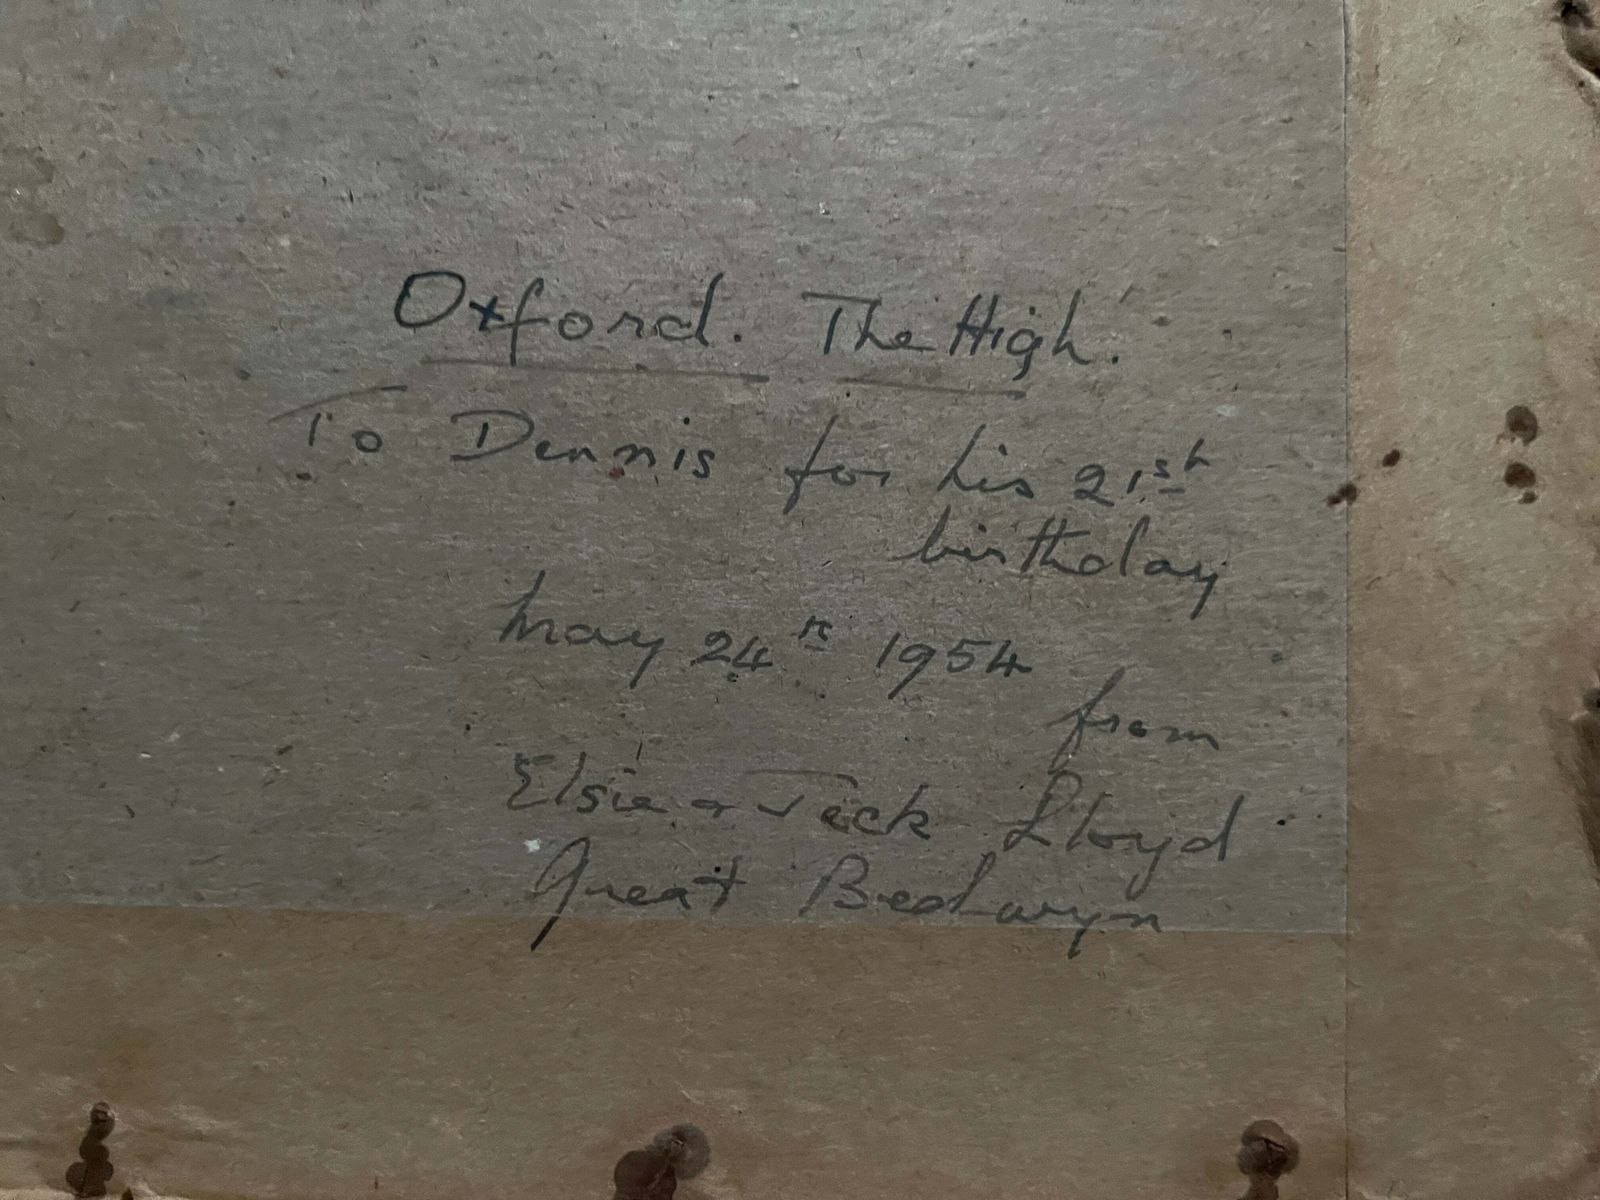 Oxford. The High.
To Dennis for his 21st
birthday
May 24th 1954
from
Elsie & Jack Lloyd
Great Bedwyn